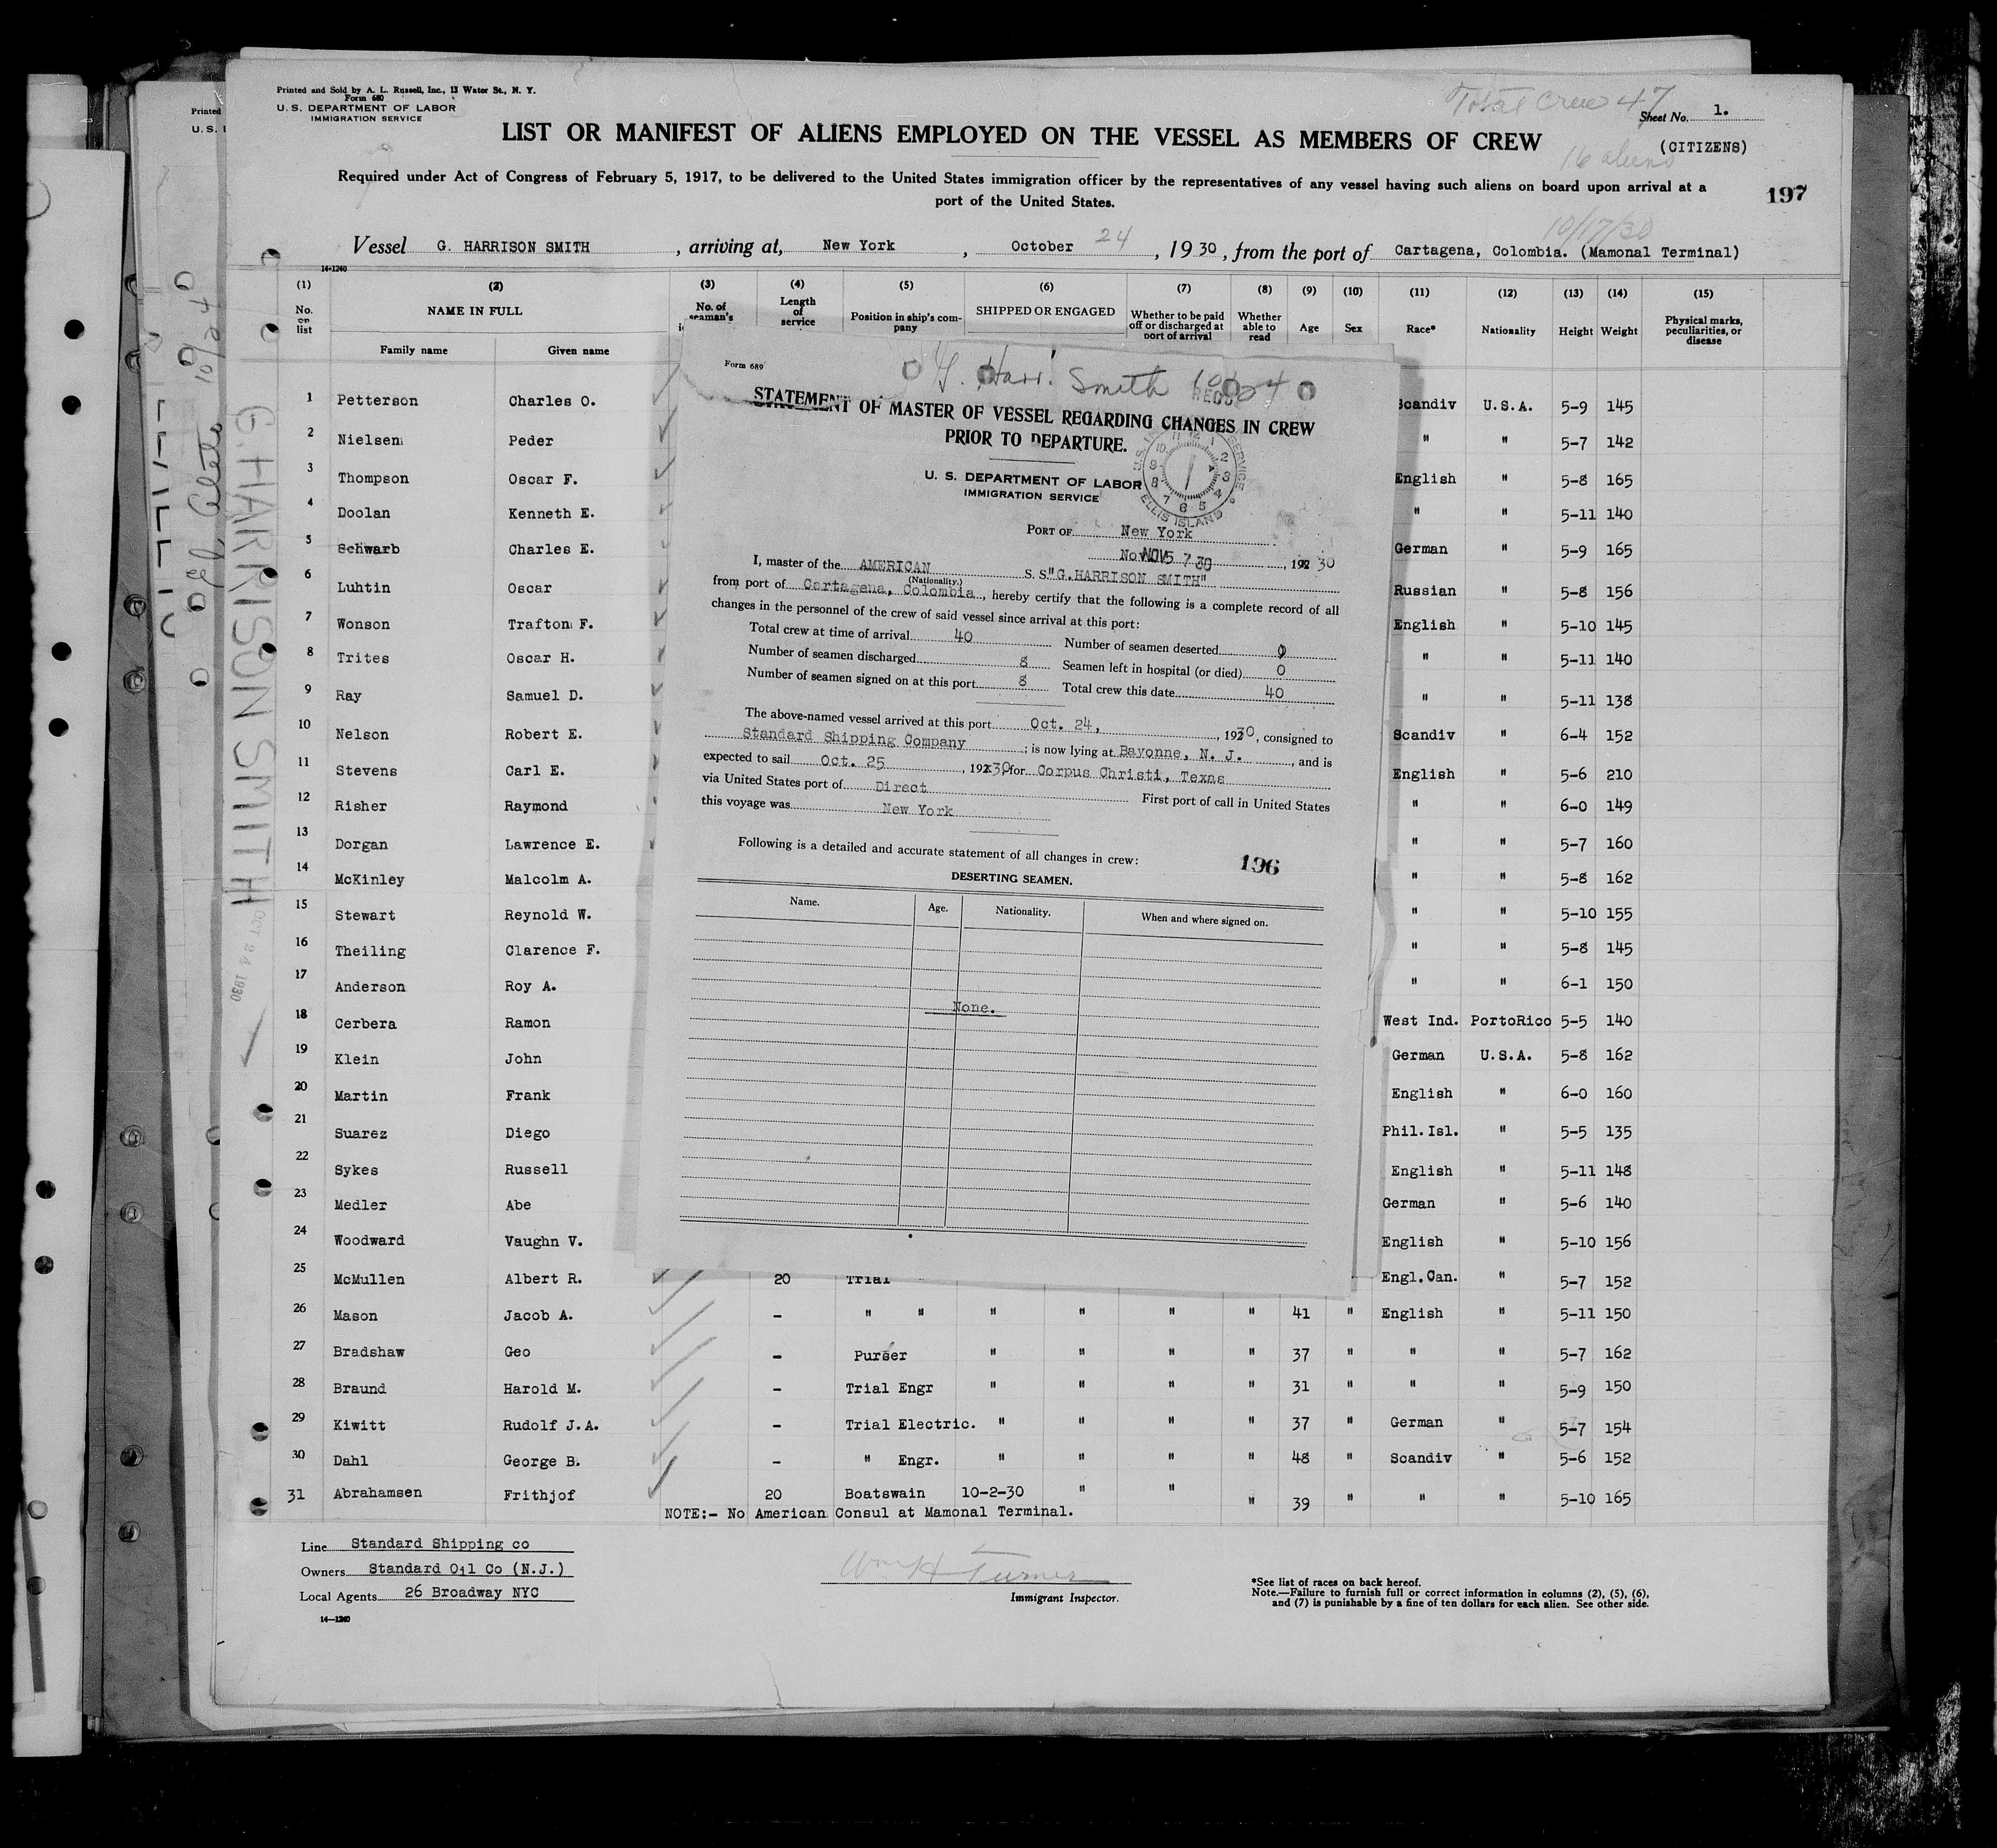 Printed and Sold by A. L. Russell, Inc., 13 Water St., N. Y.
Form 680
U. S. DEPARTMENT OF LABOR
IMMIGRATION SERVICE
Total Crew 47
Sheet No. 1.
LIST OR MANIFEST OF ALIENS EMPLOYED ON THE VESSEL AS MEMBERS OF CREW
(CITIZENS)
16 aliens
Required under Act of Congress of February 5, 1917, to be delivered to the United States immigration officer by the representatives of any vessel having such aliens on board upon arrival at a
port of the United States.
197
10/17/30
Vessel G. HARRISON SMITH, arriving at, New York, October 24, 1930, from the port of Cartagena, Colombia. (Mamonal Terminal)
14-1240
(1) (2) (3) (4) (5) (6) (7) (8) (9) (10) (11) (12) (13) (14) (15)
No. on list NAME IN FULL No. of seaman's Length of service Position in ship's company SHIPPED OR ENGAGED Whether to be paid off or discharged at port of arrival Whether able to read Age Sex Race* Nationality Height Weight Physical marks, peculiarities, or disease
Family name Given name
1 Petterson Charles O. Scandiv U.S.A. 5-9 145
2 Nielsen Peder " " 5-7 142
3 Thompson Oscar F. English " 5-8 165
4 Doolan Kenneth E. " " 5-11 140
5 Schwarb Charles E. German " 5-9 165
6 Luhtin Oscar Russian " 5-8 156
7 Wonson Trafton F. English " 5-10 145
8 Trites Oscar H. " " 5-11 140
9 Ray Samuel D. " " 5-11 138
10 Nelson Robert E. Scandiv " 6-4 152
11 Stevens Carl E. English " 5-6 210
12 Risher Raymond " " 6-0 149
13 Dorgan Lawrence E. " " 5-7 160
14 McKinley Malcolm A. " " 5-8 162
15 Stewart Reynold W. " " 5-10 155
16 Theiling Clarence F. " " 5-8 145
17 Anderson Roy A. " " 6-1 150
18 Cerbera Ramon West Ind. PortoRico 5-5 140
19 Klein John German U.S.A. 5-8 162
20 Martin Frank English " 6-0 160
21 Suarez Diego Phil.Isl. " 5-5 135
22 Sykes Russell English " 5-11 148
23 Medler Abe German " 5-6 140
24 Woodward Vaughn V. English " 5-10 156
25 McMullen Albert R. 20 Trial Engl.Can. " 5-7 152
26 Mason Jacob A. - " " " " " " 41 " English " 5-11 150
27 Bradshaw Geo - Purser " " " " 37 " " " 5-7 162
28 Braund Harold M. - Trial Engr " " " " 31 " " " 5-9 150
29 Kiwitt Rudolf J.A. - Trial Electric. " " " " 37 " German " 5-7 154
30 Dahl George B. - " Engr. " " " " 48 " Scandiv " 5-6 152
31 Abrahamsen Frithjof 20 Boatswain 10-2-30 " " " 39 " " " 5-10 165
NOTE:- No American Consul at Mamonal Terminal.
Line Standard Shipping co
Owners Standard Oil Co (N.J.)
Local Agents 26 Broadway NYC
14-1240
Wm H Turner
Immigrant Inspector.
*See list of races on back hereof.
Note.—Failure to furnish full or correct information in columns (2), (5), (6),
and (7) is punishable by a fine of ten dollars for each alien. See other side.
Form 689
G. Harr. Smith 10/24
STATEMENT OF MASTER OF VESSEL REGARDING CHANGES IN CREW
PRIOR TO DEPARTURE.
U. S. DEPARTMENT OF LABOR
IMMIGRATION SERVICE
ELLIS ISLAND
PORT OF New York
NOV 5 7 30, 1930
I, master of the AMERICAN S. S. "G.HARRISON SMITH"
(Nationality.)
from port of Cartagena, Colombia, hereby certify that the following is a complete record of all
changes in the personnel of the crew of said vessel since arrival at this port:
Total crew at time of arrival 40 Number of seamen deserted 0
Number of seamen discharged 8 Seamen left in hospital (or died) 0
Number of seamen signed on at this port 8 Total crew this date 40
The above-named vessel arrived at this port Oct. 24, 1930, consigned to
Standard Shipping Company; is now lying at Bayonne, N. J., and is
expected to sail Oct. 25, 1930 for Corpus Christi, Texas
via United States port of Direct First port of call in United States
this voyage was New York
Following is a detailed and accurate statement of all changes in crew:
196
DESERTING SEAMEN.
Name. Age. Nationality. When and where signed on.
None.
G. HARRISON SMITH
OCT 24 1930
Printed
U. S. I